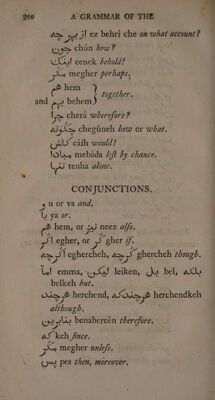 210 A GRAMMAR OF THE
از بهر چه ez behri che on what account?
چون chún how?
اینک eenek behold!
مگر megher perhaps.
هم hem } together.
and بهم behem }
چرا cherá wherefore?
چگونه chegúneh how or what.
کاش cáſh would!
مبادا mebáda leſt by chance.
تنها tenha alone.
CONJUNCTIONS.
و u or va and.
یا ya or.
هم hem, or نیز neez alſo.
اگر egher, or گر gher if.
اگرچه eghercheh, گرچه ghercheh though.
اما emma, لیکن leiken, بل bel, بلکه
belkeh but.
هرچند herchend, هرچندکه herchendkeh
although.
بنابرین benabereen therefore.
که keh ſince.
مگر megher unleſs.
پس pes then, moreover.